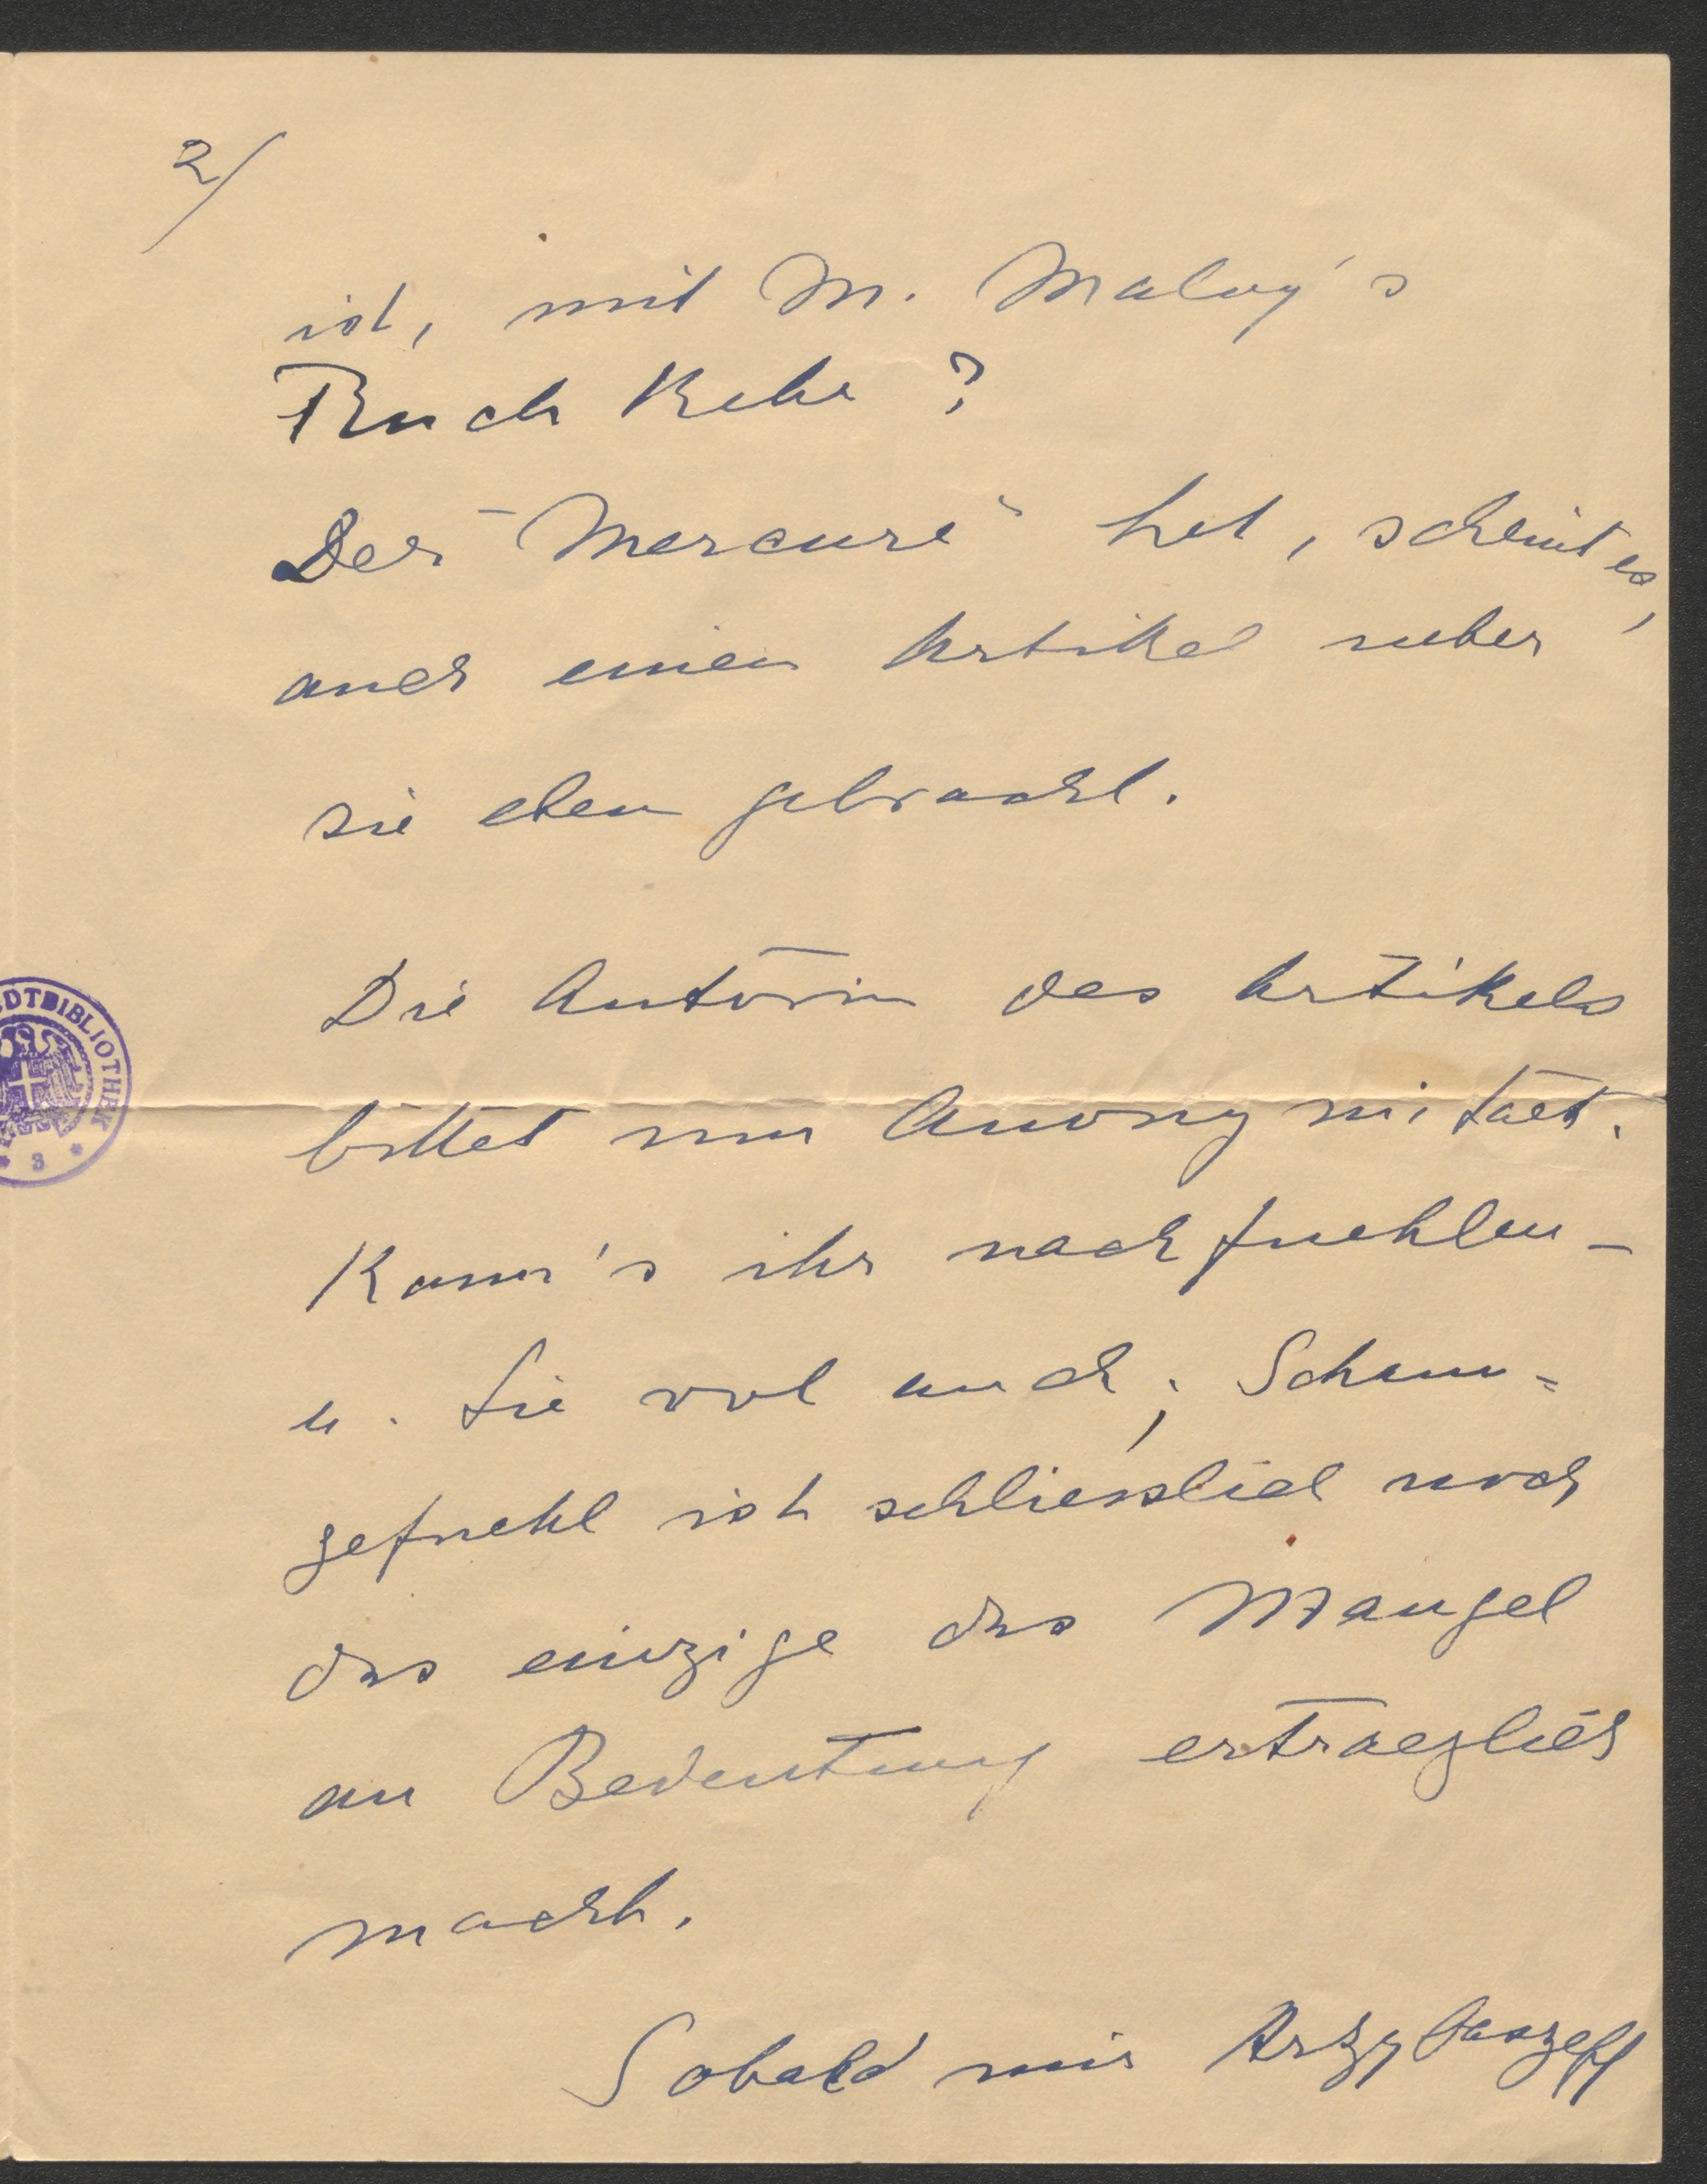 2/
ist, mit M. Maloy's
Buch kehr?
Der "Mercure" hat, scheint es,
auch einen Artikel ueber
sie eben gebracht.
Die Autorin des Artikels
bittet um Anonymitaet.
Kann's ihr nachfuehlen -
u. Sie wol auch; Scham=
gefuehl ist schliesslich noch
das einzige das Mangel
an Bedeutung ertraeglich
macht.
Sobald mir Arzybaszeff
DTBIBLIOTHEK
* 3 *